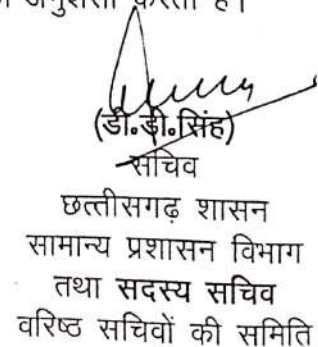 अनुशंसा करता है।
(डी.डी.सिंह)
सचिव
छत्तीसगढ़ शासन
सामान्य प्रशासन विभाग
तथा सदस्य सचिव
वरिष्ठ सचिवों की समिति